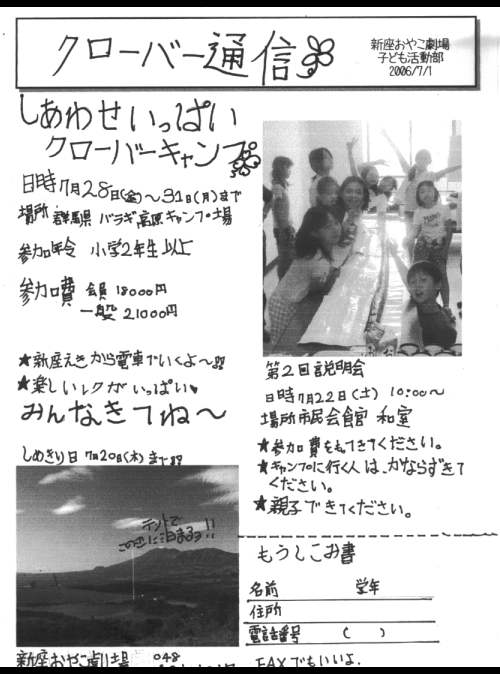 クローバー通信
新座おやこ劇場
子ども活動部
2006/7/1
しあわせいっぱい
クローバーキャンプ
日時7月28日(金)～31日(月)まで
場所 群馬県 バラギ高原キャンプ場
参加年令 小学2年生以上
参加費 会員 18000円
一般 21000円
★新座えきから電車でいくよ～!!
★楽しいレクがいっぱい♥
みんなきてね～
しめきり日 7月20日(木)まで!!
テントで
このきに泊まるヨ!!
第2回説明会
日時7月22日(土) 10:00～
場所市民会館 和室
★参加費をもってきてください。
★キャンプに行く人は、かならずきて
ください。
★親子できてください。
もうしこみ書
名前 学年
住所
電話番号 ( )
新座おやこ劇場 048
FAXでもいいよ.